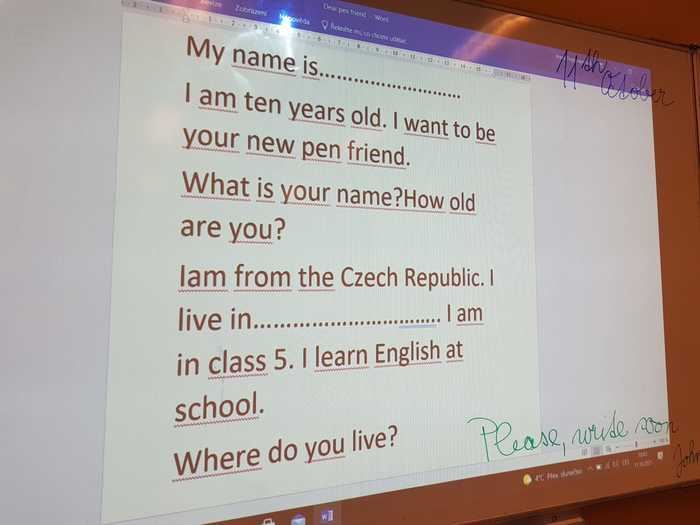 Dear pen friend - Word
Revize Zobrazení Nápověda Řekněte mi, co chcete udělat
11th
October
My name is..........................
I am ten years old. I want to be
your new pen friend.
What is your name?How old
are you?
Iam from the Czech Republic. I
live in.................................. I am
in class 5. I learn English at
school.
Where do you live?
Please, write soon
John
4°C Přev. slunečno